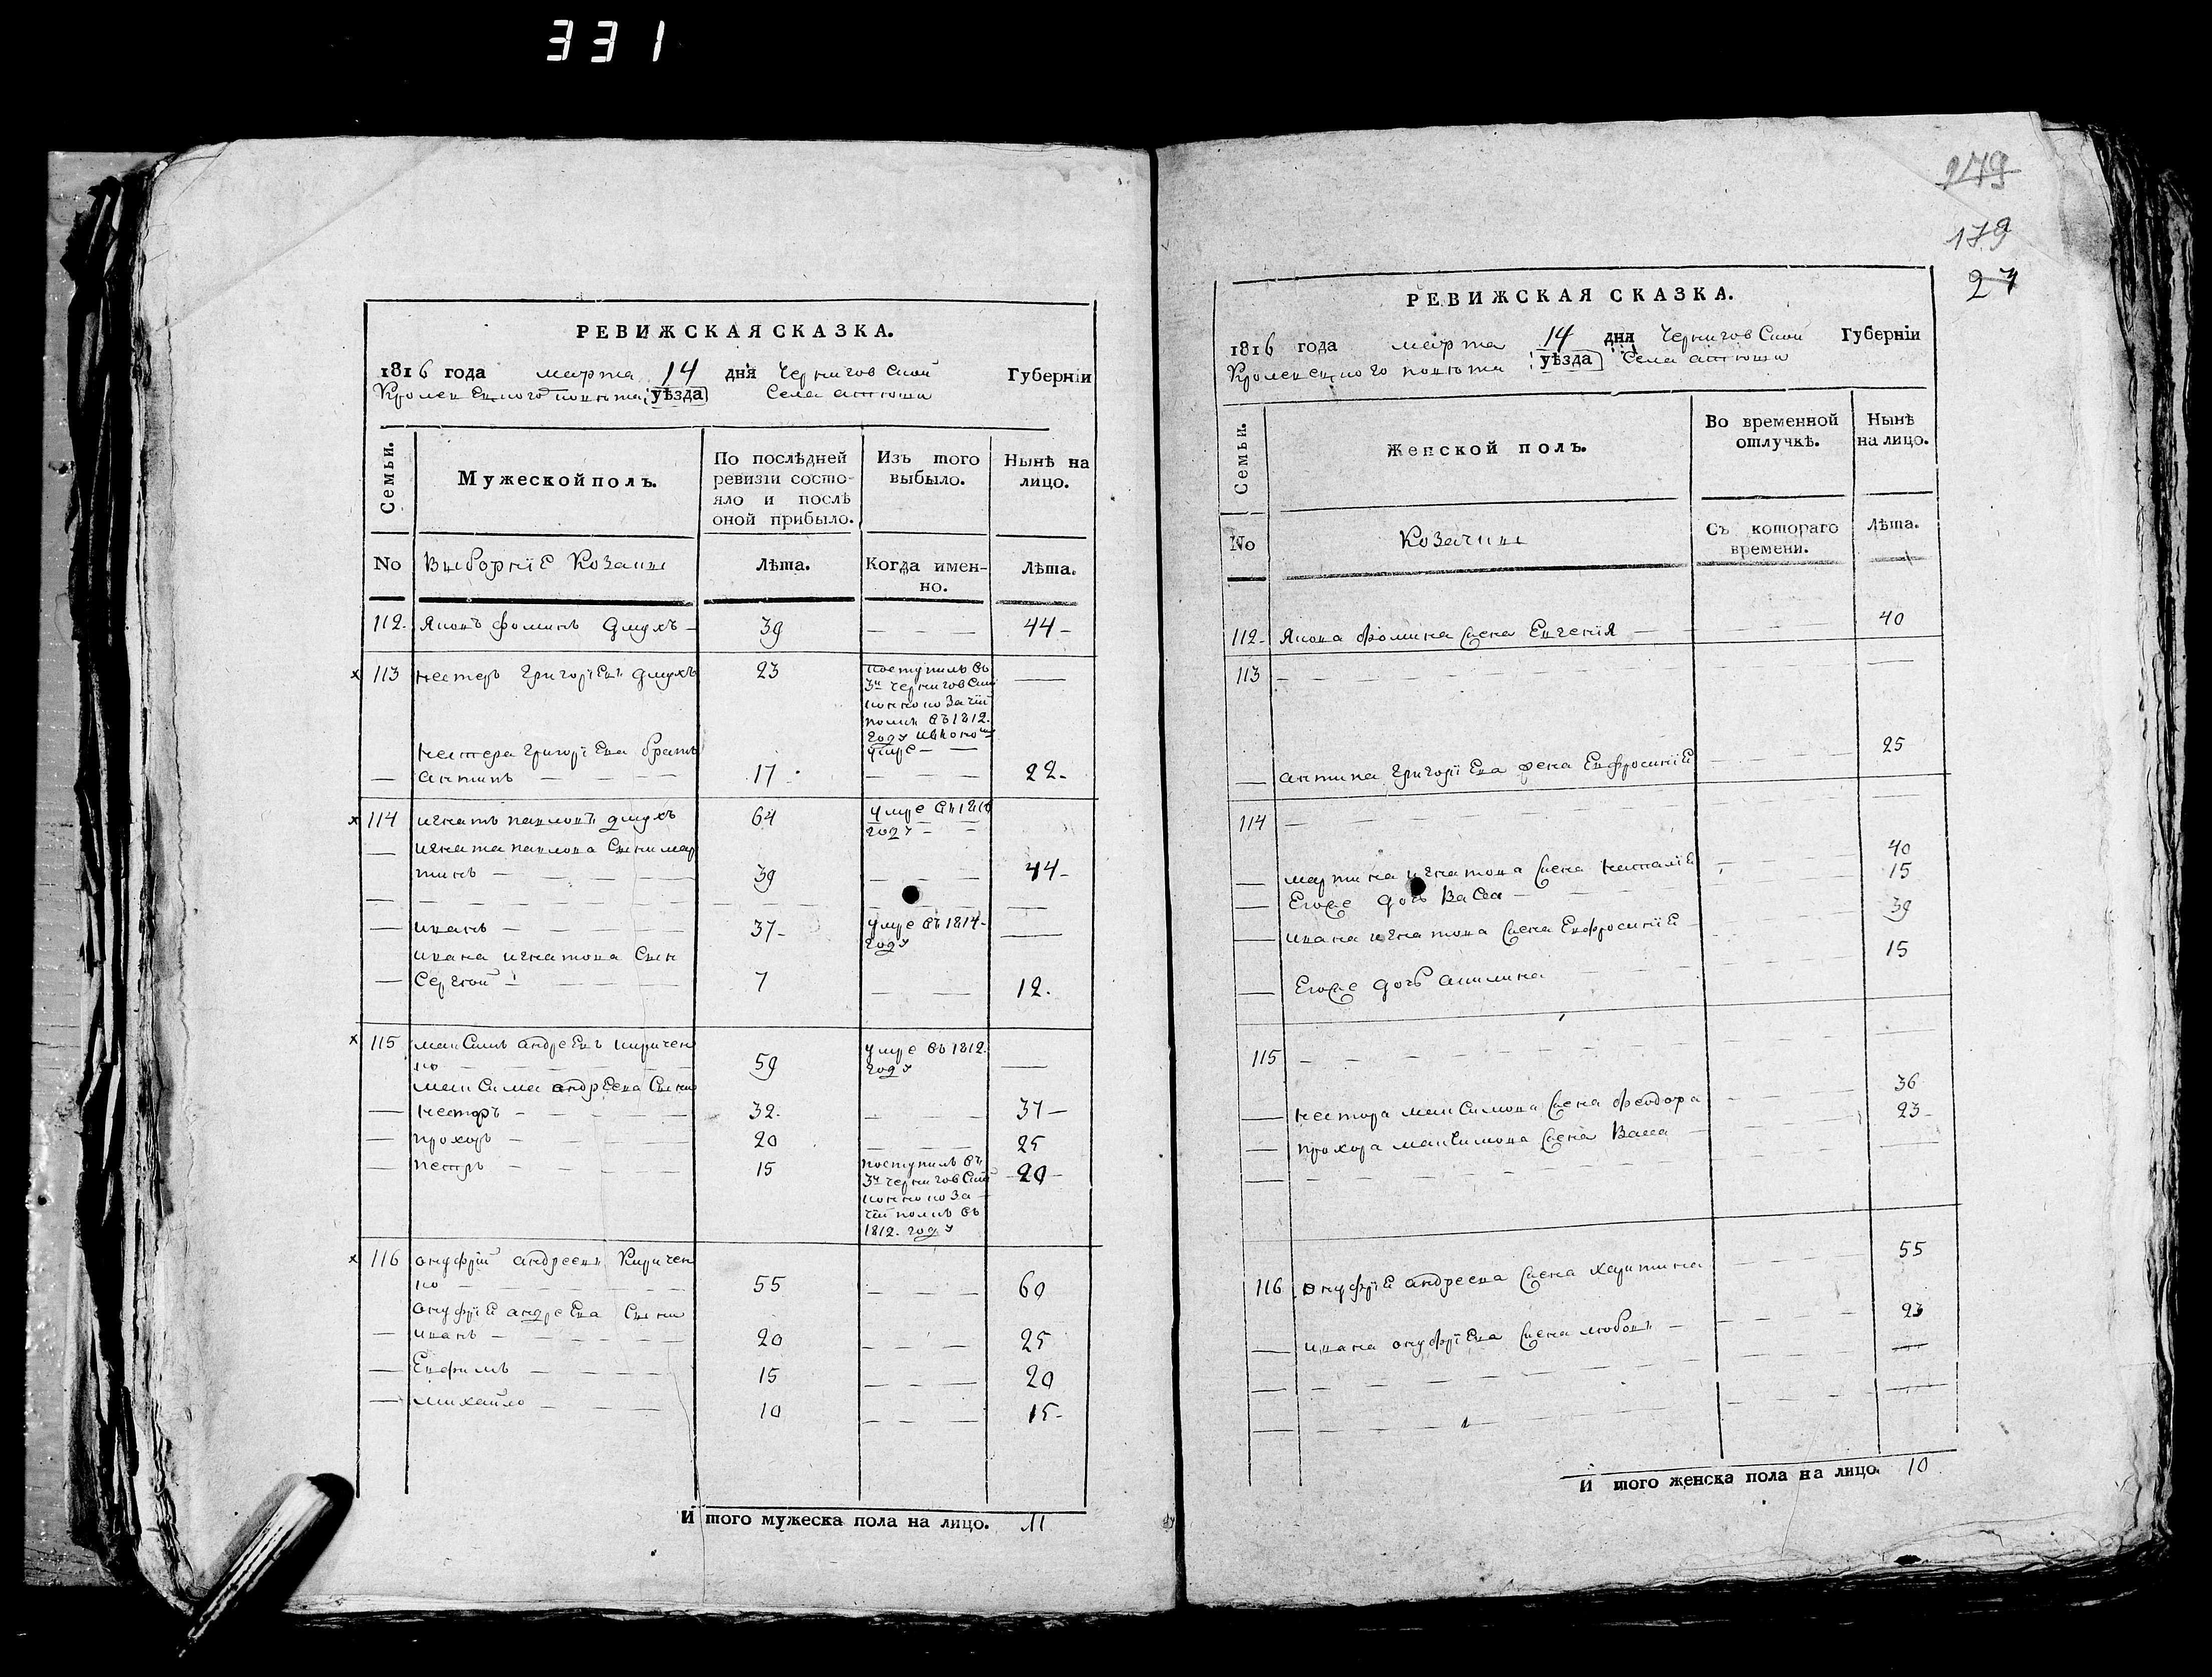 331
РЕВИЖСКАЯ СКАЗКА.
1816 года марта 14 дня Черниговской Губерніи
Кролевецкого повѣта уѣзда Села Атюши
Семьи. Мужеской полъ. По послѣдней ревизіи состояло и послѣ оной прибыло. Изъ того выбыло. Нынѣ на лицо.
No Выборніе Козаки Лѣта. Когда именно. Лѣта.
112. Яковъ фоминъ Дмухъ 39 44
113 нестеръ григоріевъ дмухъ 23 поступилъ въ
3й черниговский
конно козачий
полкъ въ 1812.
году и в оном
умре
нестера григоріева братъ
антипъ 17 22
114 игнатъ павловъ дмухъ 64 умре въ
году
игната павлова сыни мар
тинъ 39 44
иванъ 37 умре въ 1814
году
ивана игнатова сын
Сергей 7 12.
115 максимъ андреевъ киричен
ко 59 умре въ 1812.
году
максима андреева сыни
несторъ 32. 37
прохоръ 20 25
петръ 15 поступилъ въ 20
3й черниговский
конно коза
чий полкъ въ
1812. году
116 онуфрій андреевъ Киричен
ко 55 60
онуфріе андреева сыни
иванъ 20 25
Евфимъ 15 20
михайло 10 15
И того мужеска пола на лицо. 11
279
179
27
РЕВИЖСКАЯ СКАЗКА.
1816 года марта 14 дня Черниговской Губерніи
Кролевецкого повѣта уѣзда Села атюши
Семьи. Женской полъ. Во временной отлучкѣ. Нынѣ на лицо.
No Козачки Съ котораго времени. Лѣта.
112 Якова фомина жена Евгенія 40
113
антипа григоріева жена Евфросиніе 25
114
мартина игнатова жена наталіе 40
Егоже дочь Васа 15
ивана игнатова жена Евфросиніе 39
Егоже дочь акилина 15
115
нестора максимова жена феодора 36
прохора максимова жена Васа 23
116 онуфріе андреева жена харитина 55
ивана онуфріева жена любовь 23
И того женска пола на лицо. 10